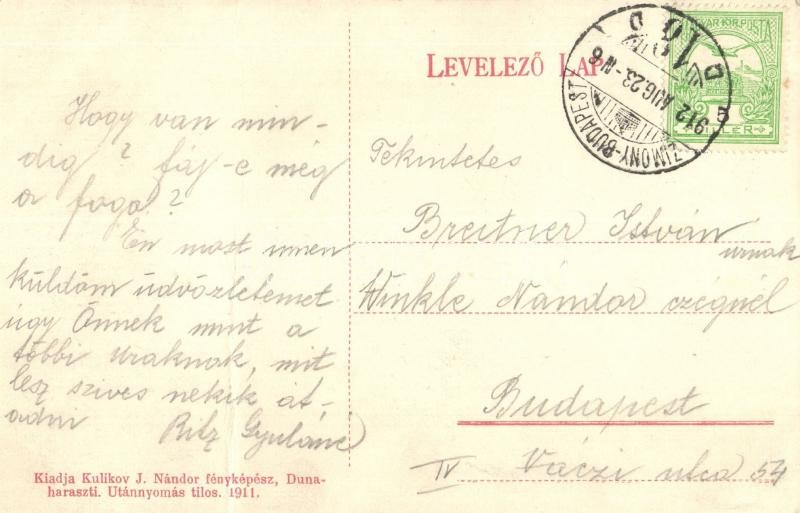 LEVELEZŐ LAP
MAGYAR KIR. POSTA
FILLÉR
ZIMONY-BUDAPEST
912 AUG. 23-N 6
D
Hogy van min-
dig? fáj-e még
a foga?
Én most innen
küldöm üdvözletemet
úgy Önnek mint a
többi uraknak, mit
lesz szives nekik át-
adni
Ritz Gyuláné
Tekintetes
Breitner István
urnak
Winkle Nándor czégnél
Budapest
IV Váczi utca 54
Kiadja Kulikov J. Nándor fényképész, Duna-
haraszti. Utánnyomás tilos. 1911.